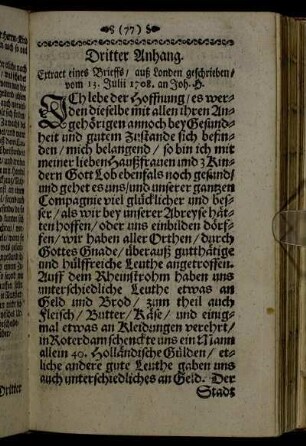 (77)
Dritter Anhang.
Extract eines Brieffs / auß Londen geschrieben /
vom 13. Julii 1708. an Joh. H.
ICh lebe der Hoffnung / es wer-
den dieselbe mit allen ihren An-
gehörigen annoch bey Gesund-
heit und guten Zustande sich befin-
den / mich belangend / so bin ich mit
meiner lieben Haußfrauen und 3 Kin-
dern Gott Lob ebenfals noch gesund /
und gehet es uns / und unserer gantzen
Compagnie viel glücklicher und bes-
ser / als wir bey unserer Abreyse hät-
ten hoffen / oder uns einbilden dörf-
fen / wir haben aller Orthen / durch
Gottes Gnade / überauß gutthätige
und hülffreiche Leuthe angetroffen.
Auff dem Rheinstrohm haben uns
unterschiedliche Leuthe etwas an
Geld und Brod / zum theil auch
Fleisch / Butter / Käse / und einig-
mal etwas an Kleidungen verehrt /
in Roterdam schenckte uns ein Mann
allein 40. Holländische Gülden / et-
liche andere gute Leuthe gaben uns
auch unterschiedliches an Geld. Der
Stadt
Dritter